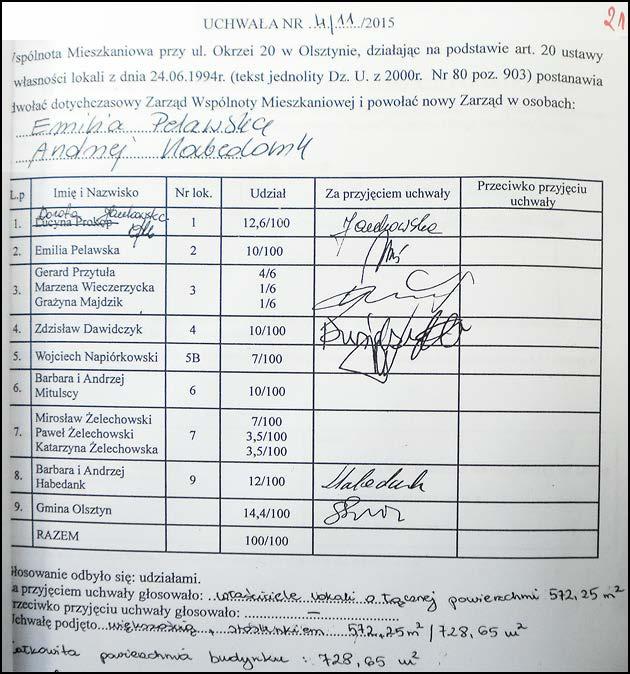 21
UCHWAŁA NR 4/11/2015
spólnota Mieszkaniowa przy ul. Okrzei 20 w Olsztynie, działając na podstawie art. 20 ustawy
własności lokali z dnia 24.06.1994r. (tekst jednolity Dz. U. z 2000r. Nr 80 poz. 903) postanawia
dwołać dotychczasowy Zarząd Wspólnoty Mieszkaniowej i powołać nowy Zarząd w osobach:
Emilia Peławska
Andrzej Habedank
L.p Imię i Nazwisko Nr lok. Udział Za przyjęciem uchwały Przeciwko przyjęciu uchwały
Dorota
1. Lucyna Prokop 1 12,6/100
2. Emilia Pelawska 2 10/100
3. Gerard Przytuła 3 4/6
Marzena Wieczerzycka 1/6
Grażyna Majdzik 1/6
4. Zdzisław Dawidczyk 4 10/100
5. Wojciech Napiórkowski 5B 7/100
6. Barbara i Andrzej Mitulscy 6 10/100
7. Mirosław Żelechowski 7 7/100
Paweł Żelechowski 3,5/100
Katarzyna Żelechowska 3,5/100
8. Barbara i Andrzej Habedank 9 12/100 Habedank
9. Gmina Olsztyn 14,4/100
RAZEM 100/100
łosowanie odbyło się: udziałami.
a przyjęciem uchwały głosowało: właściciele lokali o łącznej powierzchni 572,25 m²
rzeciwko przyjęciu uchwały głosowało: –
chwałę podjęto większością, stosunkiem 572,25m² / 728,65 m²
ałkowita powierzchnia budynku : 728,65 m²